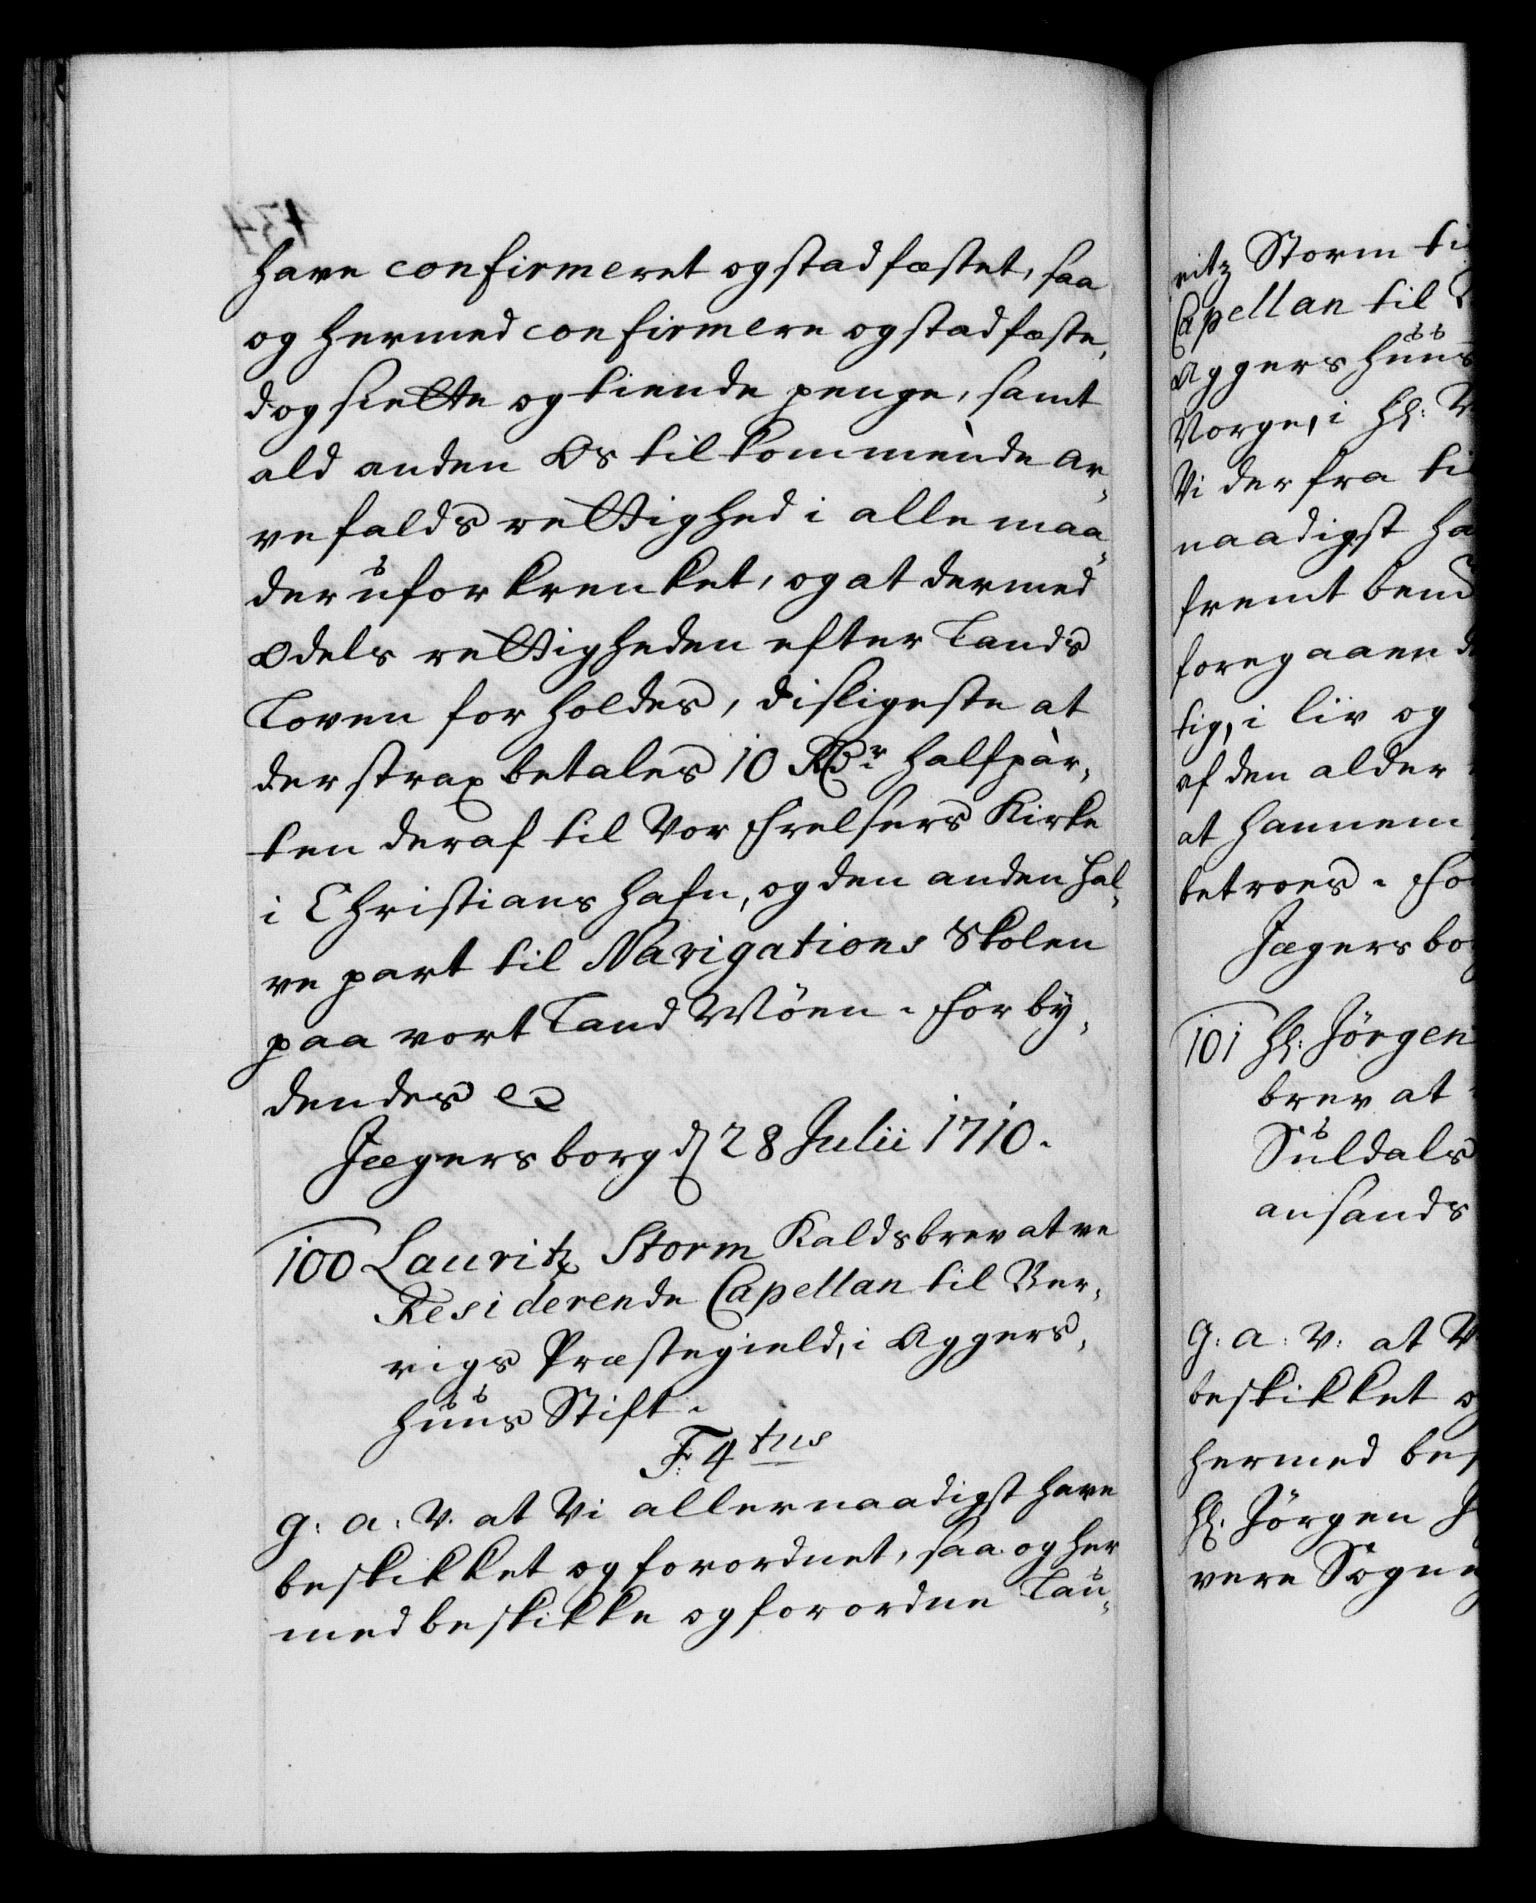 have confirmeret og stadfæstet, saa
og hermed confirmere og stadfæste,
dog siette og tiende penge, samt
ald anden Os tilkommende ar-
vefalds rettighed i alle maa-
der uforkrenket, og at dermed
Odels rettigheden efter Lands
Loven forholdes, disligeste at
der strax betales 10 Rdr halfpar-
ten deraf til Vor Frelsers Kirke
i Christians Hafn, og den anden hal-
ve part til Navigations Skolen
paa vort Land Møen. Forby-
dendes etc
Jægersborg d 28 Julii 1710.
100 Lauritz Storm Kaldsbrev at ve
Residerende Capellan til
rigs Præstegield, i Aggers-
huus Stift.
F. 4tus
G: a: V. at Vi allernaadigst have
beskikket og forordnet, saa og her
med beskikke og forordne Lau-
ritz Storm ti
Capellan til
Aggershuus
Norge, i Hr:
Vi der fra til
naadigst ha
fremt bem
foregaaen
tig, i liv og
af den alder
at hannem
betroes. For
Jægersbor
101 Hr: Jørgen
brev at
Suldals
ansands
G: a: V: at V
beskikket o
hermed bes
Hr: Jørgen
være Sogne